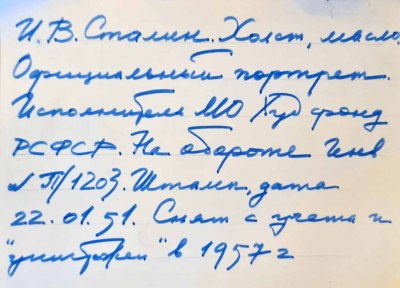 И.В.Сталин. Холст, масло
Официальный портрет.
Исполнитель МО Худ фонд
РСФСР. На обороте Инв
№ П/1203. Штамп, дата
22.01.51. Снят с учета и
"уничтожен" в 1957 г